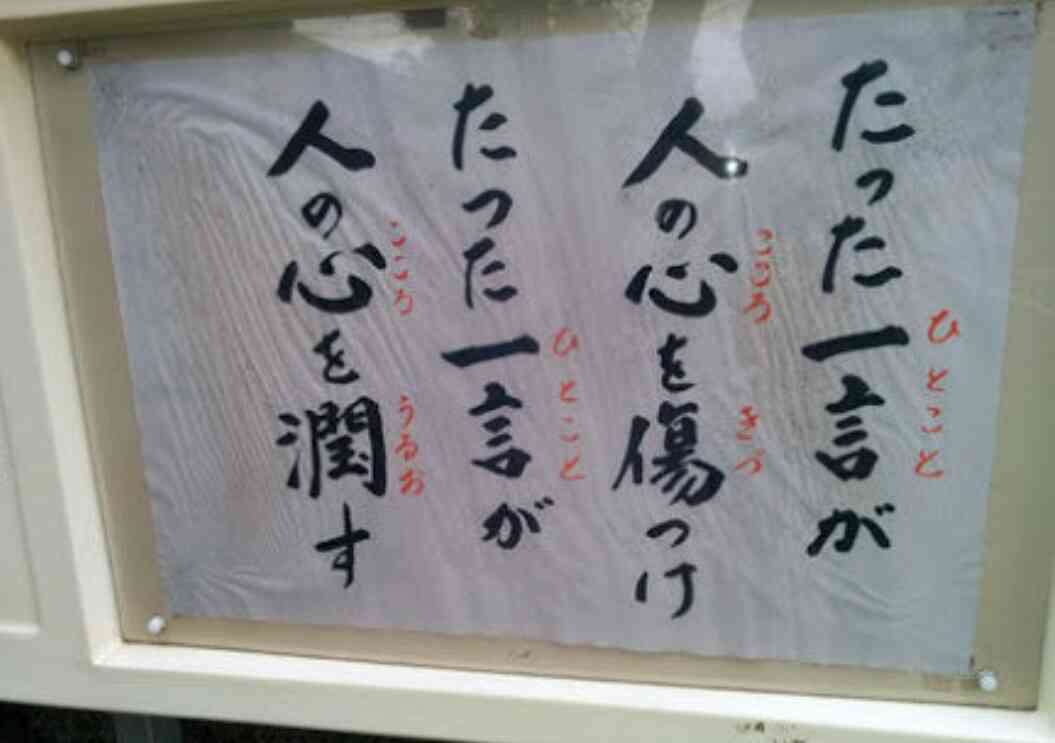 たった一言が
人の心を傷つけ
たった一言が
人の心を潤す
ひとこと
こころ
きづ
ひとこと
こころ
うるお